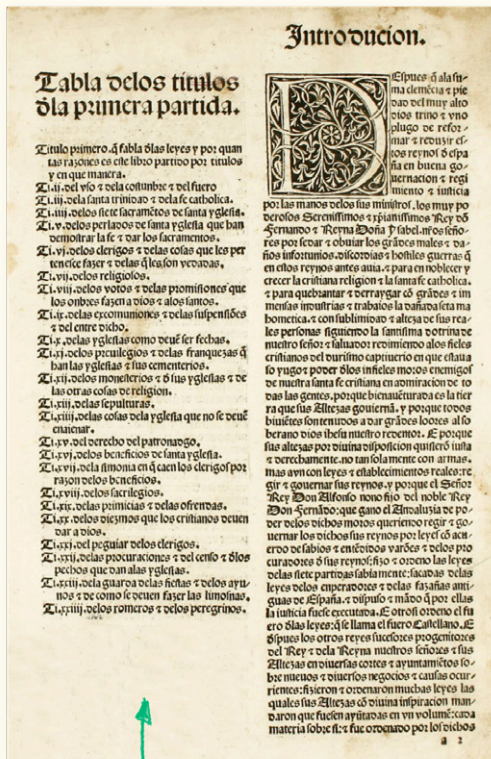 Introducion.
Tabla delos titulos
đla primera partida.
Titulo primero. q̃ fabla đlas leyes y por quan
tas razones es este libro partido por titulos
y en que manera.
Ti.ij. del vso ⁊ dela costunbre ⁊ del fuero
Ti.iij. dela santa trinidad ⁊ dela fe catholica.
Ti.iiij. delos siete sacramẽtos de santa yglesia.
Ti.v. delos perlados de santa yglesia que han
demostrar la fe ⁊ dar los sacramentos.
Ti.vj. delos clerigos ⁊ delas cosas que les per
tenesce fazer ⁊ delas q̃ les son vedadas.
Ti.vij. delos religiosos.
Ti.viij. delos votos ⁊ delas promisiones que
los onbres fazen a dios ⁊ alos santos.
Ti.ix. delas excomuniones ⁊ delas suspẽsiões
⁊ del entre dicho.
Ti.x. delas yglesias como deuẽ ser fechas.
Ti.xj. delos preuilegios ⁊ delas franquezas q̃
han las yglesias ⁊ sus cementerios.
Ti.xij. delos monesterios ⁊ đ sus yglesias ⁊ de
las otras cosas de religion.
Ti.xiij. delas sepulturas.
Ti.xiiij. delas cosas dela yglesia que no se deuẽ
enajenar.
Ti.xv. del derecho del patronadgo.
Ti.xvj. delos beneficios de santa yglesia.
Ti.xvij. dela simonia en q̃ caen los clerigos por
razon delos beneficios.
Ti.xviij. delos sacrilegios.
Ti.xix. delas primicias ⁊ delas ofrendas.
Ti.xx. delos diezmos que los cristianos deuen
dar a dios.
Ti.xxj. del peguiar delos clerigos.
Ti.xxij. delas procuraciones ⁊ del censo ⁊ đlos
pechos que dan alas yglesias.
Ti.xxiij. dela guarda delas fiestas ⁊ delos ayu
nos ⁊ de como se deuen fazer las limosnas.
Ti.xxiiij. delos romeros ⁊ delos peregrinos.
DEspues q̃ ala su
ma clemẽcia ⁊ pie
dad del muy alto
dios trino ⁊ vno
plugo de refor-
mar ⁊ reduzir es-
tos reynos đ espa
ña en buena go-
uernacion ⁊ regi
miento ⁊ iusticia
por las manos delos sus ministros. los muy po
derosos Serenissimos ⁊ xp̃ianissimos Rey dõ
Fernando ⁊ Reyna Doña Ysabel. nr̃os señо-
res por sedar ⁊ obuiar los grãdes males ⁊ da-
ños infortunios. discordias ⁊ hostiles guerras q̃
en estos reynos antes auia. ⁊ para en noblecer y
crecer la cristiana religion ⁊ la santa fe catholica.
⁊ para quebrantar ⁊ derraygar cõ grãdes ⁊ im
mensas industrias ⁊ trabajos la dañada seta ma
hometica. ⁊ con sublimidad ⁊ alteza de sus rea-
les personas siguiendo la santissima dotrina de
nuestro señor ⁊ saluador redimiendo alos fieles
cristianos del durissimo captiuerio en que estaua
so yugo ⁊ poder đlos infieles moros enemigos
de nuestra santa fe cristiana en admiracion de to
das las gentes. porque bienauẽturada es la tier
ra que sus Altezas gouiernã. y porque todos
biuiẽtes son tenudos a dar grãdes loores al so
berano dios ihesu nuestro redentor. E porque
sus altezas por diuina disposicion quisierõ iusta
⁊ derechamente. no tan sola mente con armas.
mas avn con leyes ⁊ establecimientos reales: re
gir ⁊ gouernar sus reynos. y porque el Señor
Rey Don Alfonso nono fijo del noble Rey
Don Fernãdo: que gano el Andaluzia de po-
der delos dichos moros queriendo regir ⁊ go-
uernar los dichos sus reynos por leyes cõ acu
erdo de sabios ⁊ entẽdidos varões ⁊ delos pro
curadores đ sus reynos: fizo ⁊ ordeno las leyes
delas siete partidas sabia mente: sacadas delas
leyes delos enperadores ⁊ delas fazañas anti
guas de España. ⁊ dispuso ⁊ mãdo q̃ por ellas
la iusticia fuese executada. E otrosi ordeno el fu
ero đlas leyes: q̃ se llama el fuero Castellano. E
đspues los otros reyes sucesores progenitores
del Rey ⁊ dela Reyna nuestros señores ⁊ sus
Altezas en diuersas cortes ⁊ ayuntamiẽtos so-
bre nueuos ⁊ diuersos negocios ⁊ causas ocur-
rientes: fizieron ⁊ ordenaron muchas leyes las
quales sus Altezas cõ diuina inspiracion man-
daron que fuesen ayũtadas en vn volumẽ: cada
materia sobre si: ⁊ fue ordenado por los dichos
a 2